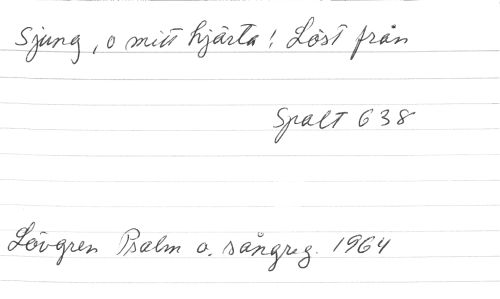 Sjung, o mitt hjärta! Löst från
Spalt 638
Lövgren Psalm o. sångreg. 1964